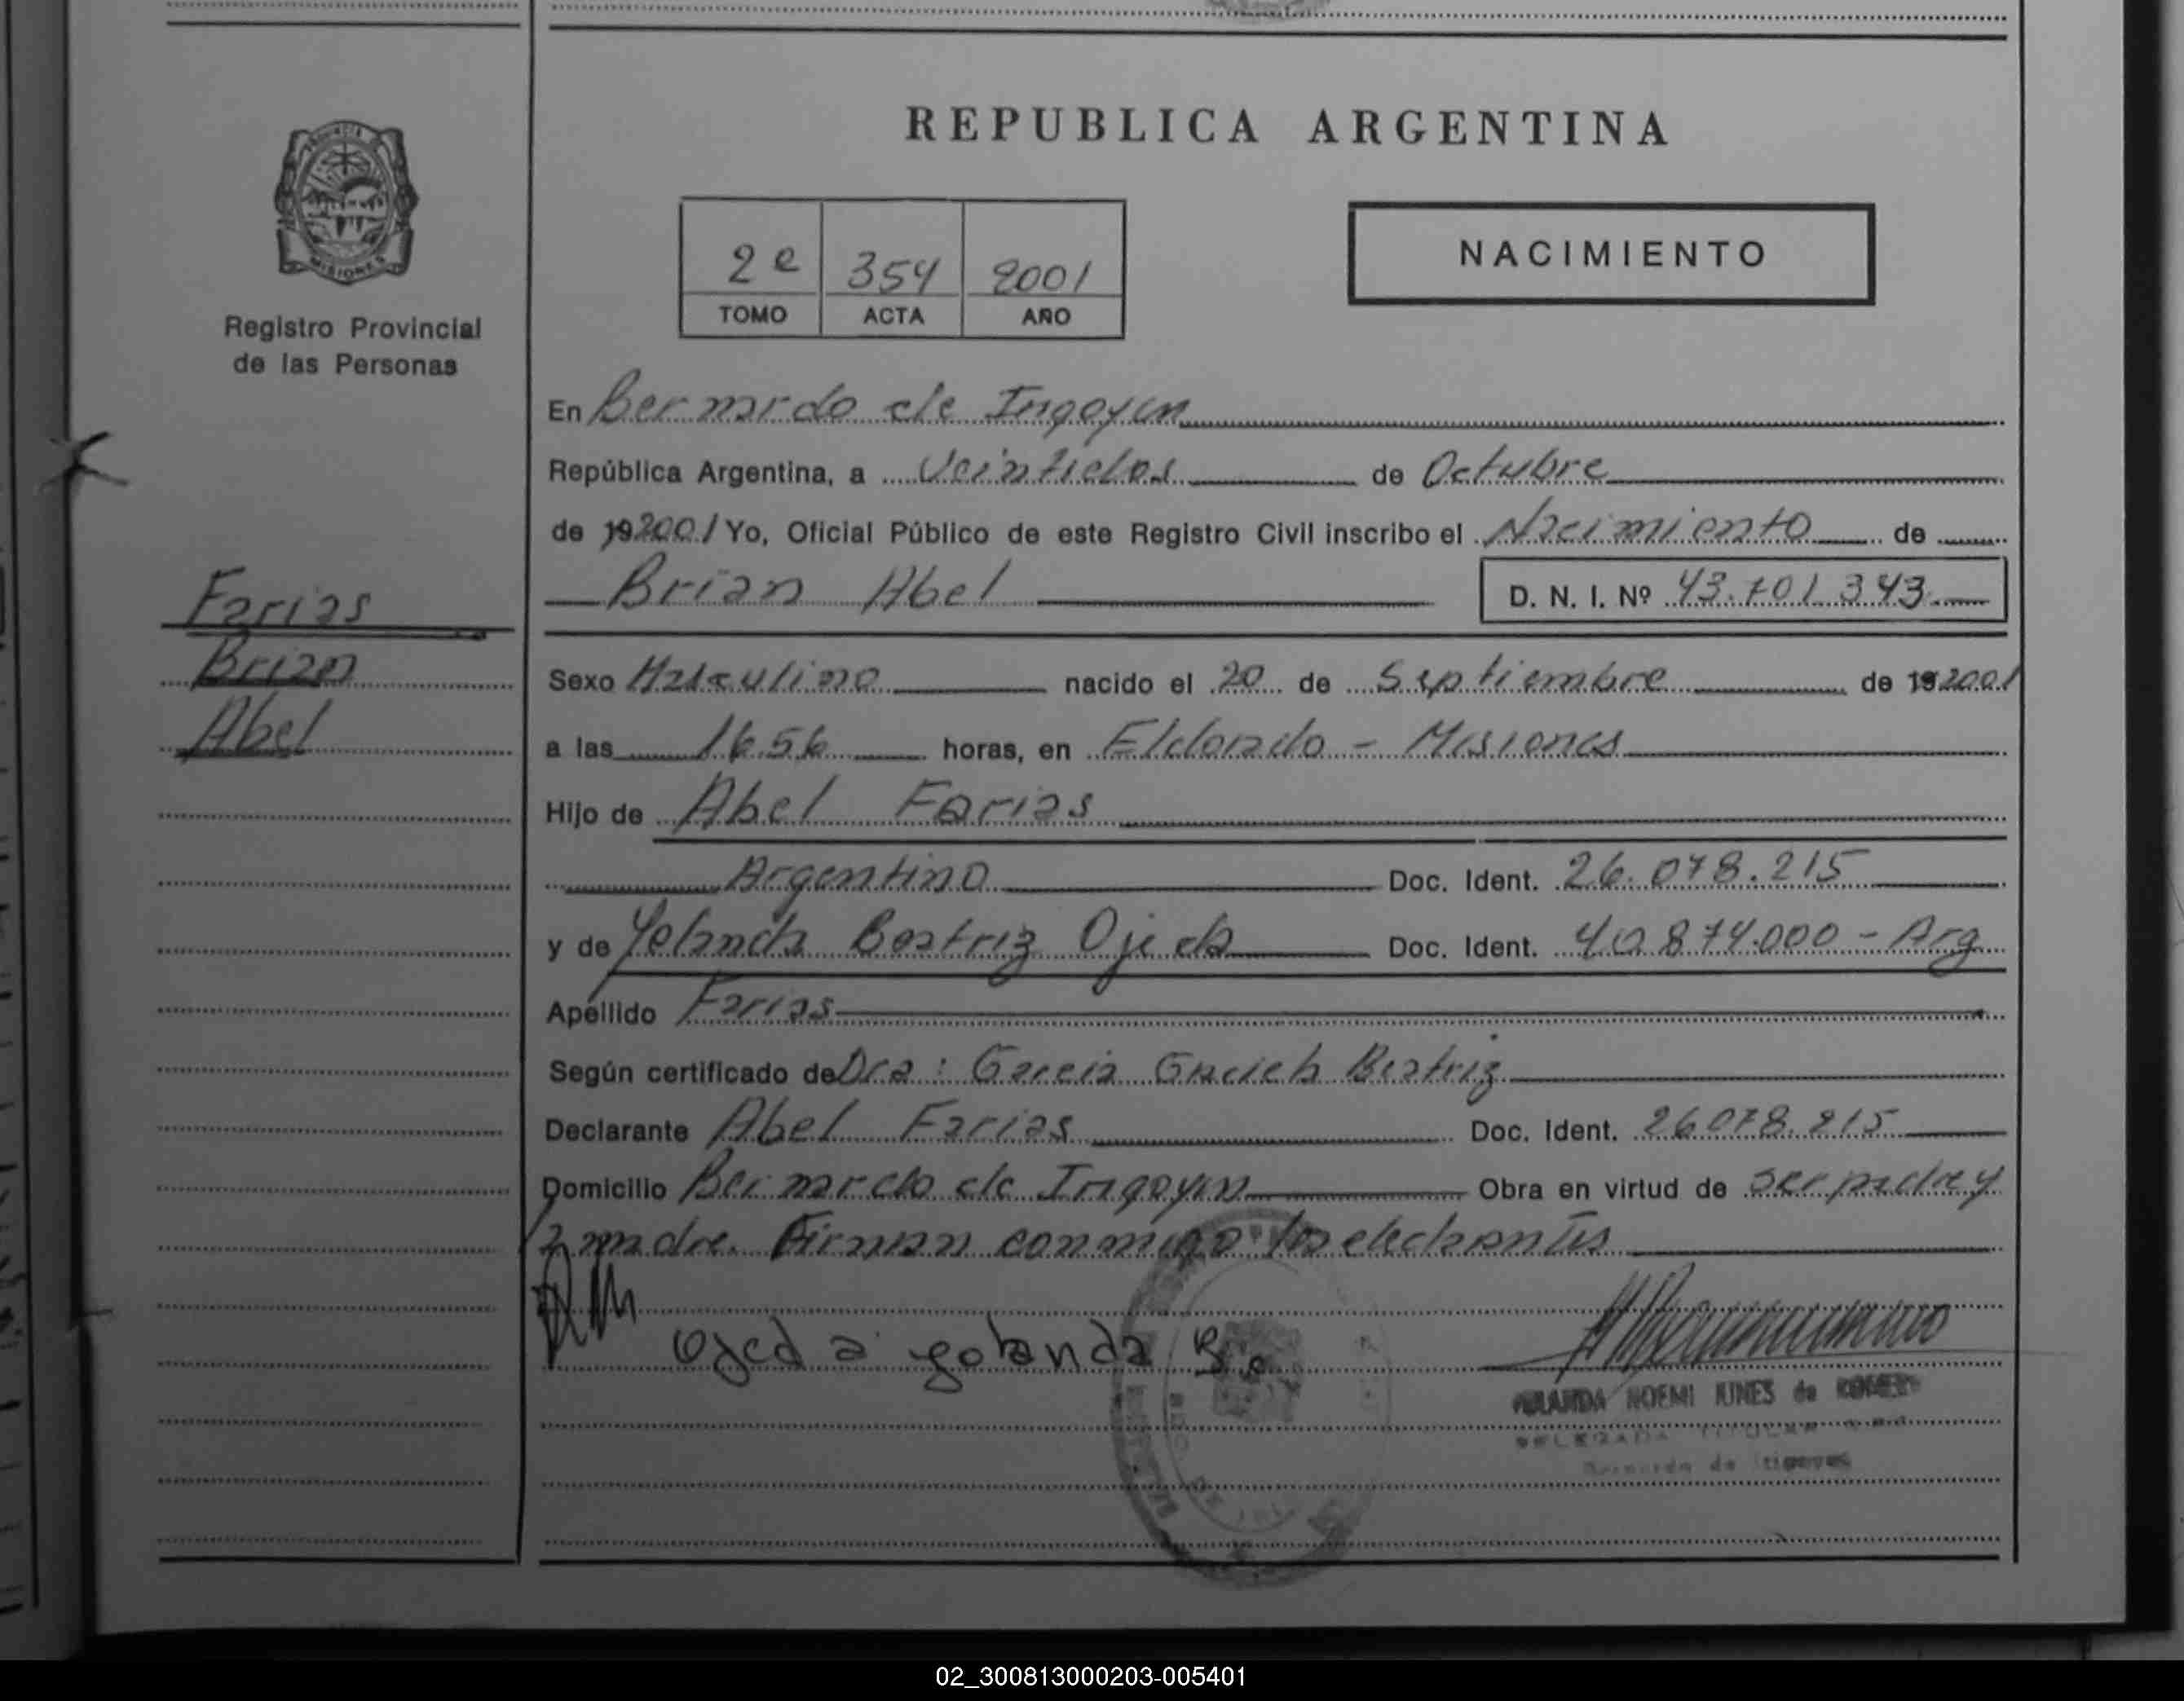 REPUBLICA ARGENTINA
PROVINCIA
MISIONES
Registro Provincial
de las Personas
2e 354 2001
TOMO ACTA AÑO
NACIMIENTO
En Bernardo de Irigoyen
República Argentina, a Veintidos de Octubre
de 192001 Yo, Oficial Público de este Registro Civil inscribo el Nacimiento de
Brian Abel D. N. I. Nº 43.701.343
Farias
Brian
Abel
Sexo Masculino nacido el 20 de Septiembre de 192001
a las 16.56 horas, en Eldorado - Misiones
Hijo de Abel Farias
Argentino Doc. Ident. 26.078.215
y de Yolanda Beatriz Ojeda Doc. Ident. 40.874.000 - Arg
Apellido Farias
Según certificado de Dra: Garcia Graciela Beatriz
Declarante Abel Farias Doc. Ident. 26.078.215
Domicilio Bernardo de Irigoyen Obra en virtud de ser padre y
madre. Firman conmigo los declarantes
Ojeda yolanda B.
NOEMI JUNES de ROMERO
DELEGADA TITULAR
Bernardo de Irigoyen
02_300813000203-005401